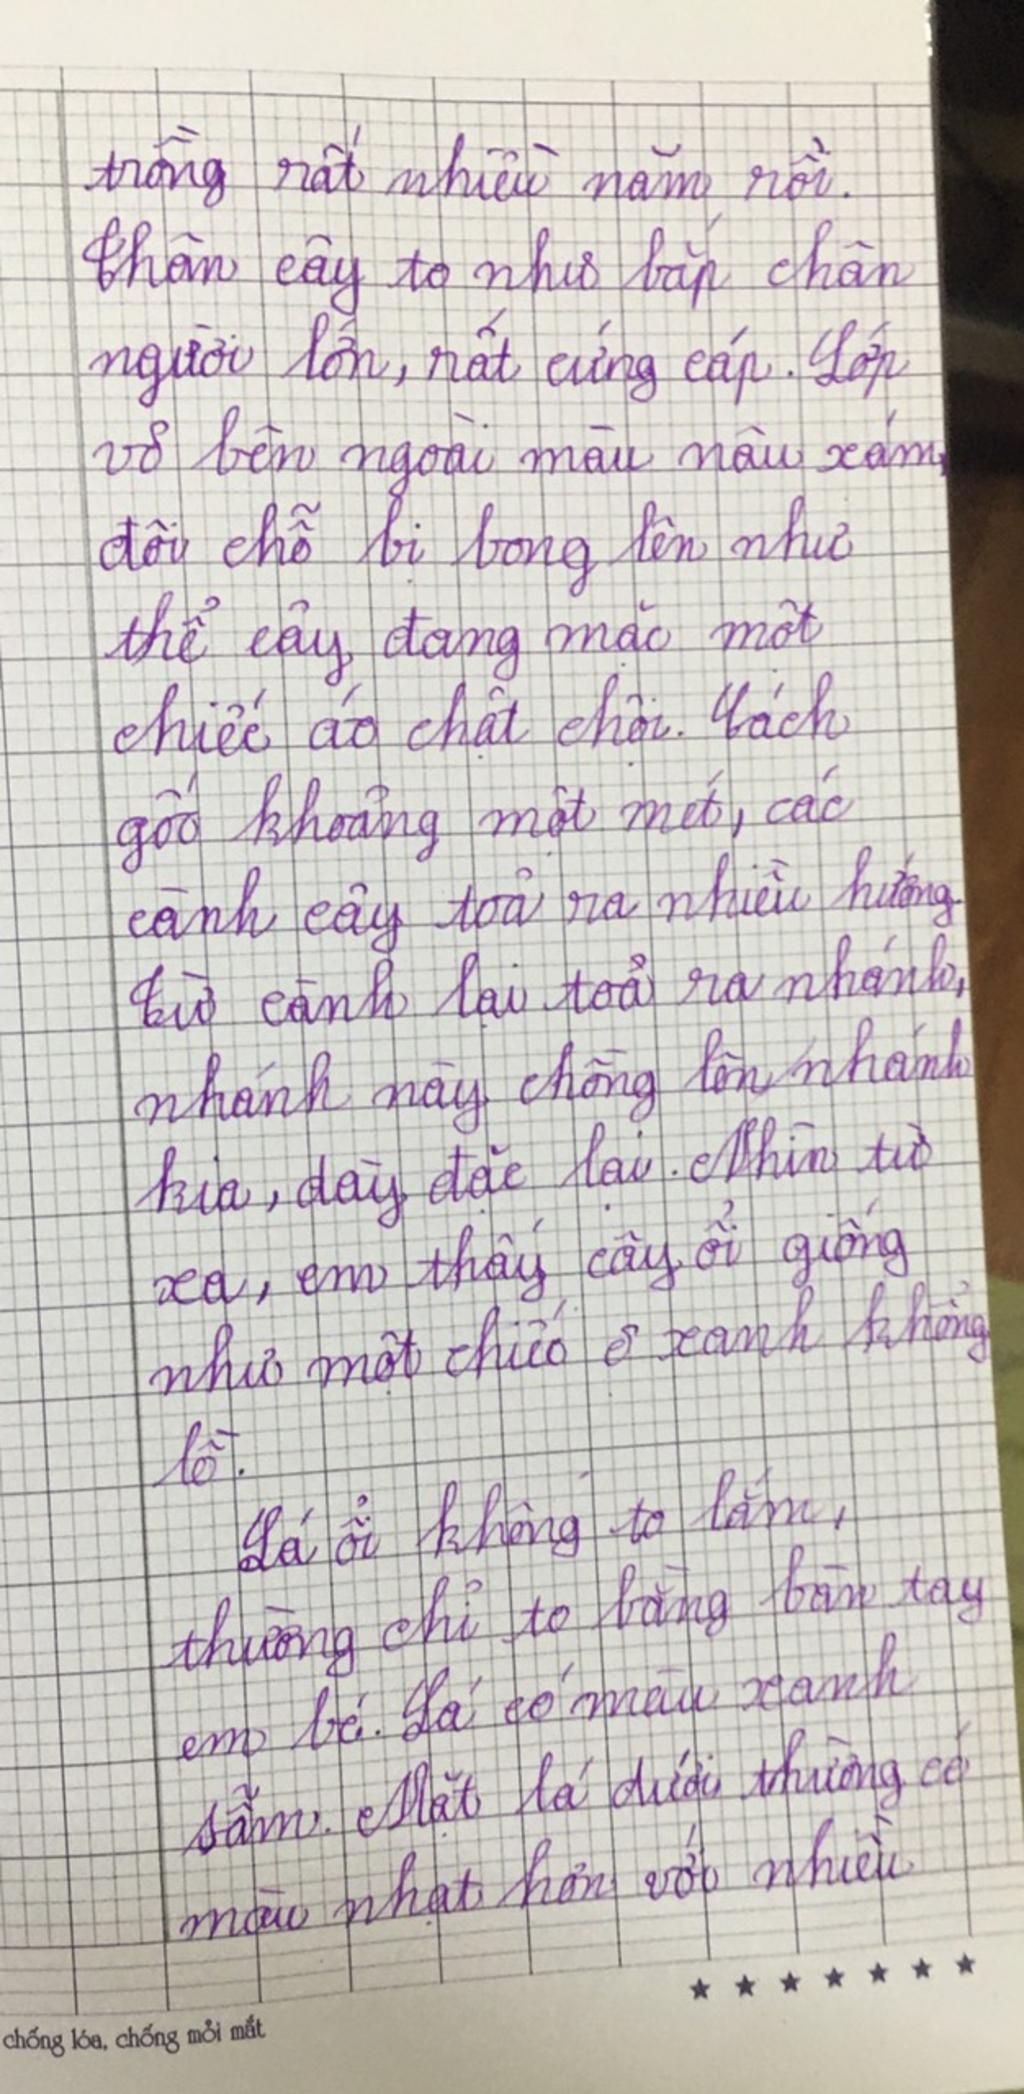 trồng rất nhiều năm rồi.
Thân cây to như bắp chân
người lớn, rất cứng cáp. Lớp
vỏ bên ngoài màu nâu xám,
đôi chỗ bị bong lên như
thể cây đang mặc một
chiếc áo chật chội. Cách
gốc khoảng một mét, các
cành cây toả ra nhiều hướng.
Từ cành lại toả ra nhánh,
nhánh này chồng lên nhánh
kia, dày đặc lại. Nhìn từ
xa, em thấy cây ổi giống
như một chiếc ô xanh khổng
lồ.
Lá ổi không to lắm,
thường chỉ to bằng bàn tay
em bé. Lá có màu xanh
sẫm. Mặt lá dưới thường có
màu nhạt hơn với nhiều
chống lóa, chống mỏi mắt